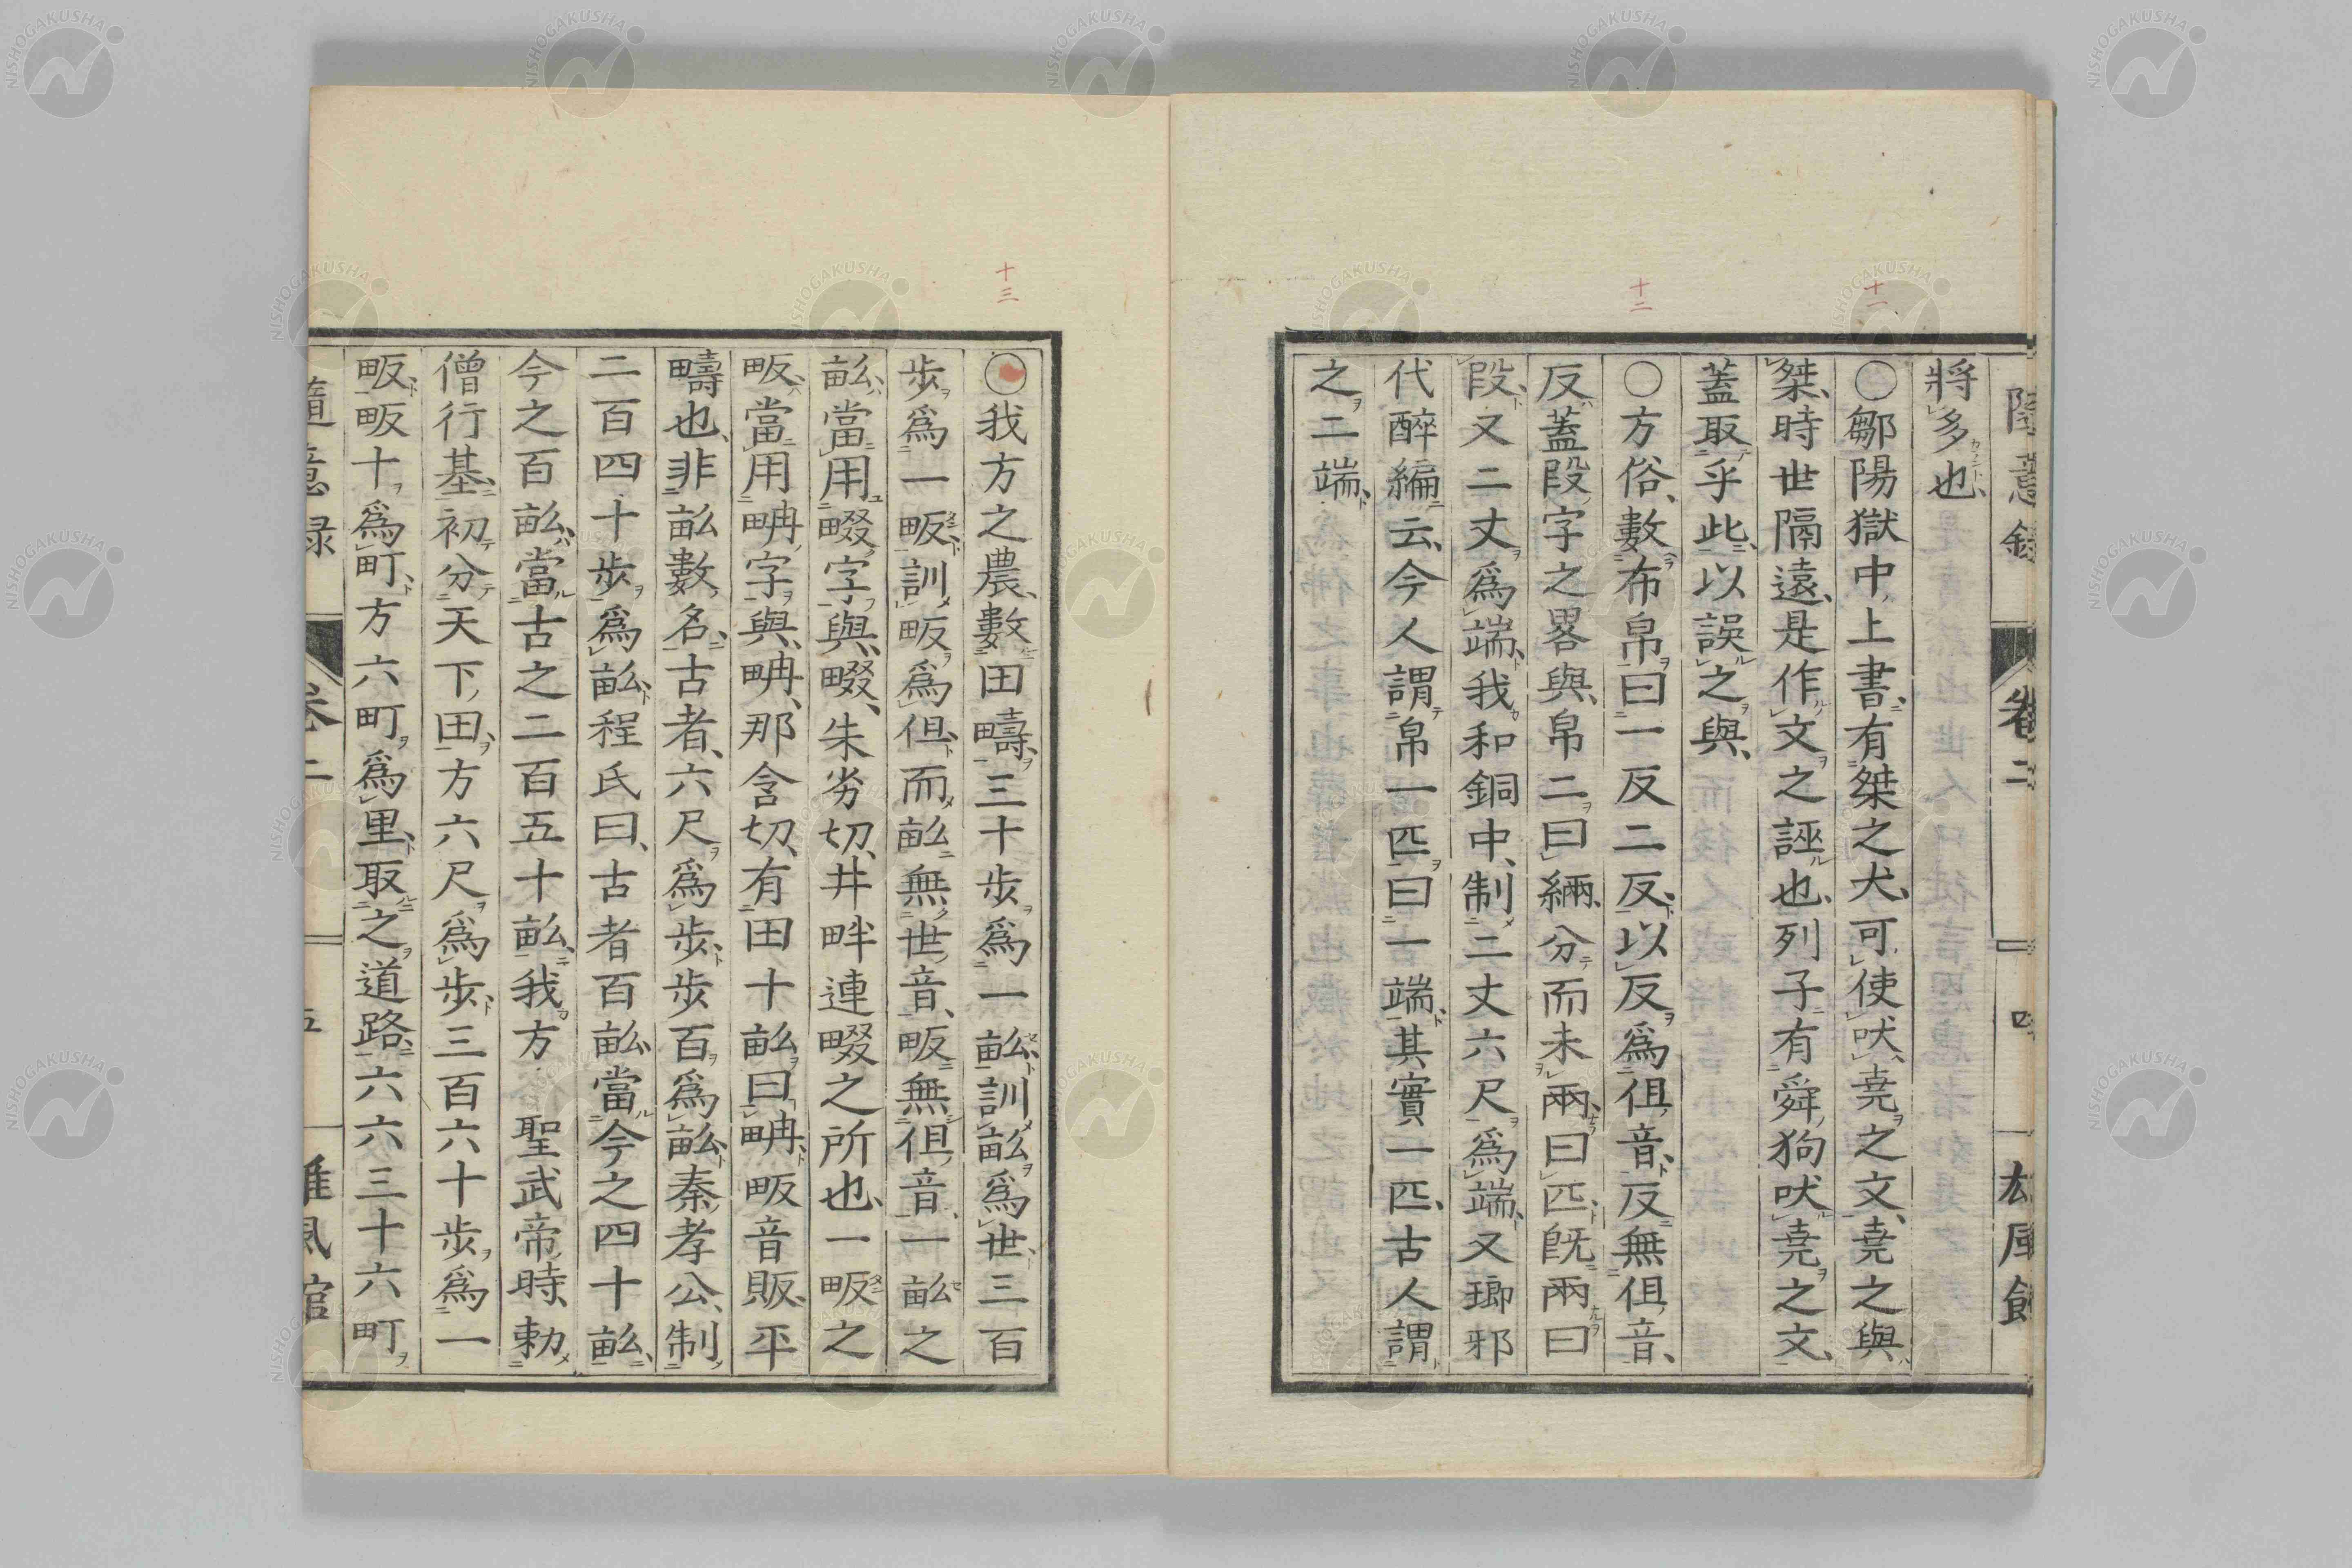 隨意錄 卷二 四 雄風館
將多也
○鄒陽獄中上書有桀之犬可使吠堯之文堯之與
桀時世隔遠是作文之誣也列子有舜狗吠堯之文
蓋取乎此以誤之與
○方俗數布帛曰一反二反以反爲伹音反無伹音
反蓋段字之畧與帛二曰緉分而未兩曰匹旣兩曰
段又二丈爲端我和銅中制二丈六尺爲端又瑯邪
代醉編云今人謂帛一匹曰一端其實一匹古人謂
之二端
○我方之農數田疇三十步爲一畝訓畝爲世三百
步爲一畈訓畈爲但而畝無世音畈無伹音一畝之
畝當用畷字與畷朱劣切井畔連畷之所也一畈之
畈當用畘字與畘那含切有田十畝曰畘畈音販平
疇也非畝數名古者六尺爲步步百爲畝秦孝公制
二百四十步爲畝程氏曰古者百畝當今之四十畝
今之百畝當古之二百五十畝我方 聖武帝時勅
僧行基初分天下田方六尺爲步三百六十步爲一
畈畈十爲町方六町爲里取之道路六六三十六町
隨意録 卷二 五 雄風館
十一
十二
十三
NISHOGAKUSHA